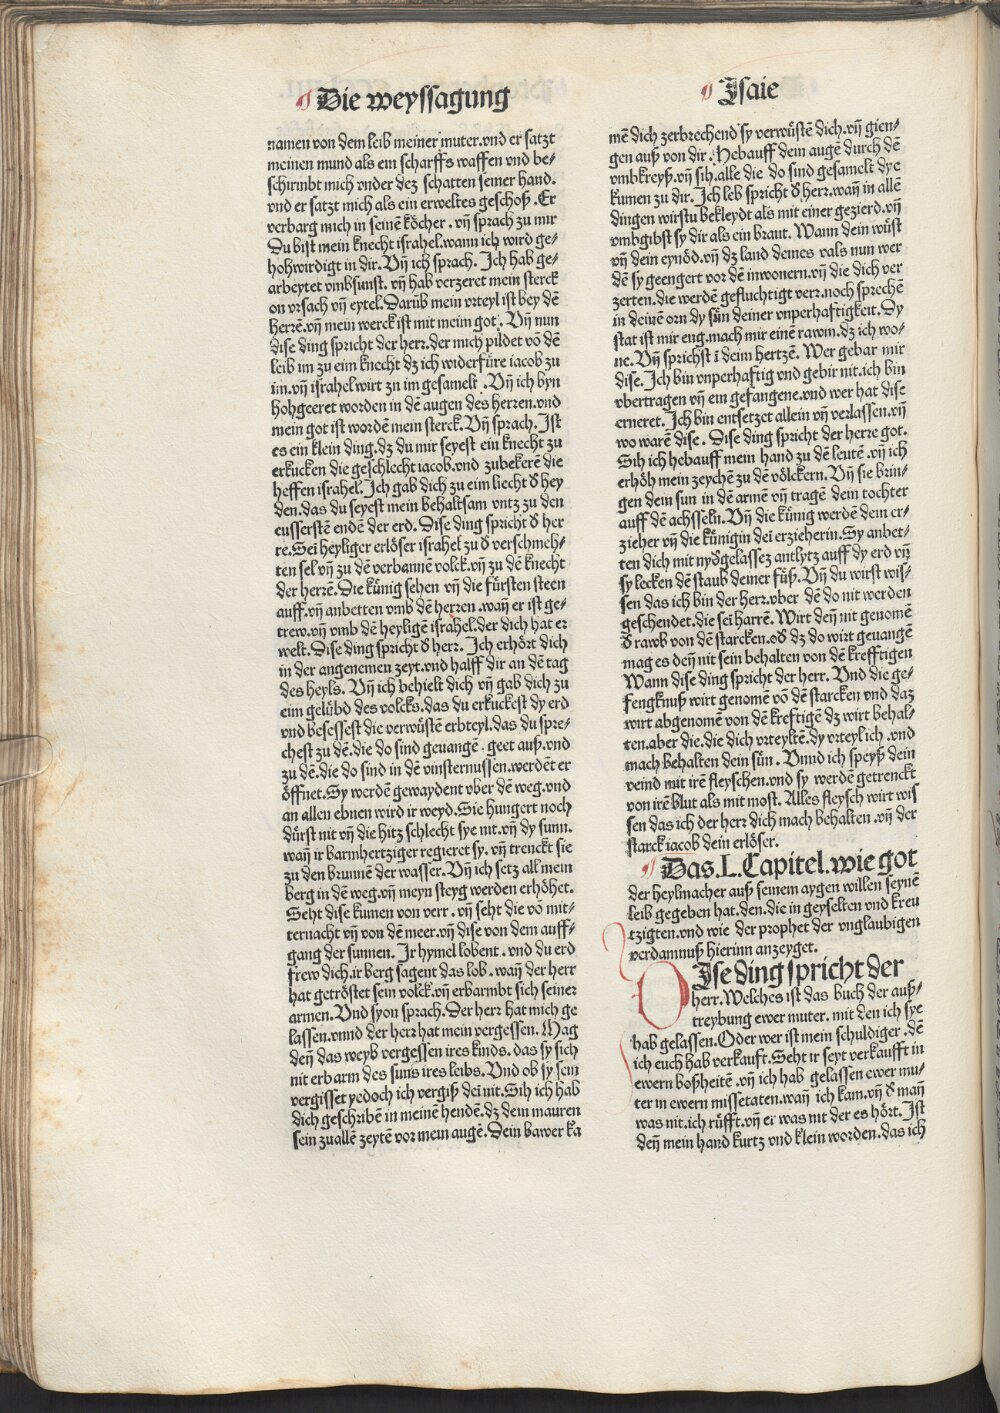 ¶ Die weyssagung
¶ Jsaie
namen von dem leib meiner muter.vnd er satzt
meinen mund als ein scharffs waffen vnd be-
schirmbt mich vnder dez schatten seiner hand.
vnd er satzt mich als ein erweltes geschoß. Er
verbarg mich in seinē köcher. vñ sprach zu mir
Du bist mein knecht israhel.wann ich wird ge-
hohwirdigt in dir. Vñ ich sprach. Jch hab ge-
arbeytet vmbsunst. vñ hab verzeret mein sterck
on vrsach vñ eytel. Darūb mein vrteyl ist bey dē
herrē.vñ mein werck ist mit meim got. Vñ nun
dise ding spricht der herr.der mich pildet vō dē
leib im zu eim knecht dz ich widerfüre iacob zu
im.vñ israhel wirt zu im gesamelt. Vñ ich byn
hohgeeret worden in dē augen des herren.vnd
mein got ist wordē mein sterck. Vñ sprach. Jst
es ein klein ding.dz du mir seyest ein knecht zu
erkucken die geschlecht iacob.vnd zubekerē die
heffen israhel. Jch gab dich zu eim liecht d̕ hey
den.das du seyest mein behaltsam vntz zu den
eusserstē endē der erd. Dise ding spricht d̕ her
re.Sei heyliger erlöser israhel zu d̕ verschmeh-
ten sel vñ zu dē verbannē volck.vñ zu dē knecht
der herrē. Die künig sehen vñ die fürsten steen
auff.vñ anbetten vmb dē herren.wañ er ist ge-
trew.vñ vmb dē heyligē israhel.der dich hat er
welt. Dise ding spricht d̕ herr. Jch erhört dich
in der angenemen zeyt.vnd halff dir an dē tag
des heyls. Vñ ich behielt dich vñ gab dich zu
eim gelübd des volcks.das du erkuckest dy erd
vnd besessest die verwüstē erbteyl.das du spre-
chest zu dē.die do sind geuangē. geet auß.vnd
zu dē.die do sind in dē vinsternussen.werdēt er
öffnet. Sy werdē gewaydent vber dē weg.vnd
an allen ebnen wird ir weyd. Sie hungert noch
dürst nit vñ die hitz schlecht sye nit.vñ dy sunn.
wañ ir barmhertziger regieret sy.vñ trenckt sie
zu den brunnē der wasser. Vñ ich setz all mein
berg in dē weg.vñ meyn steyg werden erhöhet.
Seht dise kumen von verr.vñ seht die vō mit-
ternacht vñ von dē meer.vñ dise von dem auff-
gang der sunnen. Jr hymel lobent.vnd du erd
frew dich.ir berg sagent das lob.wañ der herr
hat getröstet sein volck.vñ erbarmbt sich seiner
armen. Vnd syon sprach. Der herr hat mich ge
lassen.vnnd der herr hat mein vergessen. Mag
deñ das weyb vergessen ires kinds.das sy sich
nit erbarm des suns ires leibs. Vnd ob sy sein
vergisset yedoch ich vergiß dei nit. Sih ich hab
dich geschribē in meinē hendē.dz dein mauren
sein zuallē zeytē vor mein augē. Dein bawer ka
mē dich zerbrechend sy verwüstē dich.vñ gien-
gen auß von dir. Hebauff dein augē durch dē
vmbkreyß.vñ sih.alle die do sind gesamelt dye
kumen zu dir. Jch leb spricht d̕ herr.wañ in allē
dingen wirstu bekleydt als mit einer gezierd.vñ
vmbgibst sy dir als ein braut. Wann dein wüst
vñ dein eynöd.vñ dz land deines vals nun wer
dē sy geengert vor dē inwonern.vñ die dich ver
zerten.die werdē gefluchtigt verr.noch sprechē
in deinē orn dy sün deiner vnperhaftigkeit. Dy
stat ist mir eng.mach mir einē rawm.dz ich wo-
ne. Vñ sprichst ī deim hertzē. Wer gebar mir
dise. Jch bin vnperhaftig vnd gebir nit.ich bin
vbertragen vñ ein gefangene.vnd wer hat dise
erneret. Jch bin entsetzet allein vñ verlassen.vñ
wo warē dise. Dise ding spricht der herre got.
Sih ich hebauff mein hand zu dē leutē.vñ ich
erhöh mein zeychē zu dē völckern. Vñ sie brin-
gen dein sun in dē armē vñ tragē dein tochter
auff dē achsseln. Vñ die künig werdē dein er-
zieher vñ die künigin dei erzieherin. Sy anbet-
ten dich mit nyd̕gelassez antlytz auff dy erd vñ
sy lecken dē staub deiner füß. Vñ du wirst wis-
sen das ich bin der herr.vber dē do nit werden
geschendet.die sei harrē. Wirt deñ nit genomē
d̕ rawb von dē starcken.od̕ dz do wirt geuangē
mag es deñ nit sein behalten von dē krefftigen
Wann dise ding spricht der herr. Vnd die ge-
fengknuß wirt genomē vō dē starcken vnd daz
wirt abgenomē von dē kreftigē dz wirt behal-
ten.aber die.die dich vrteyltē.dy vrteyl ich.vnd
mach behalten dein sün. Vnnd ich speyß dein
veind mit irē fleyschen.vnd sy werdē getrenckt
von irē blut als mit most. Alles fleysch wirt wis
sen das ich der herr dich mach behalten.vñ der
starck iacob dein erlöser.
¶ Das.L.Capitel.wie got
der heylmacher auß seinem aygen willen seynē
leib gegeben hat.den.die in geyselten vnd kreu
tzigten.vnd wie der prophet der vnglaubigen
verdamnuß hierinn anzeyget.
DJse ding spricht der
herr. Welches ist das buch der auß-
treybung ewer muter.mit den ich sye
hab gelassen. Oder wer ist mein schuldiger.dē
ich euch hab verkauft. Seht ir seyt verkaufft in
ewern boßheitē.vñ ich hab gelassen ewer mu-
ter in ewern missetaten.wañ ich kam.vñ d̕ mañ
was nit.ich rüfft.vñ er was nit der es hört. Jst
deñ mein hand kurtz vnd klein worden.das ich